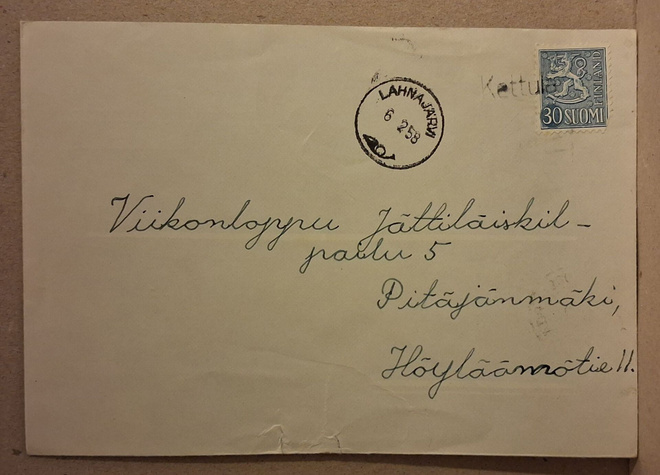 Kettula
FINLAND
30 SUOMI
LAHNAJÄRVI
6 2 58
Viikonloppu Jättiläiskil-
pailu 5
Pitäjänmäki,
Höyläämötie 11.